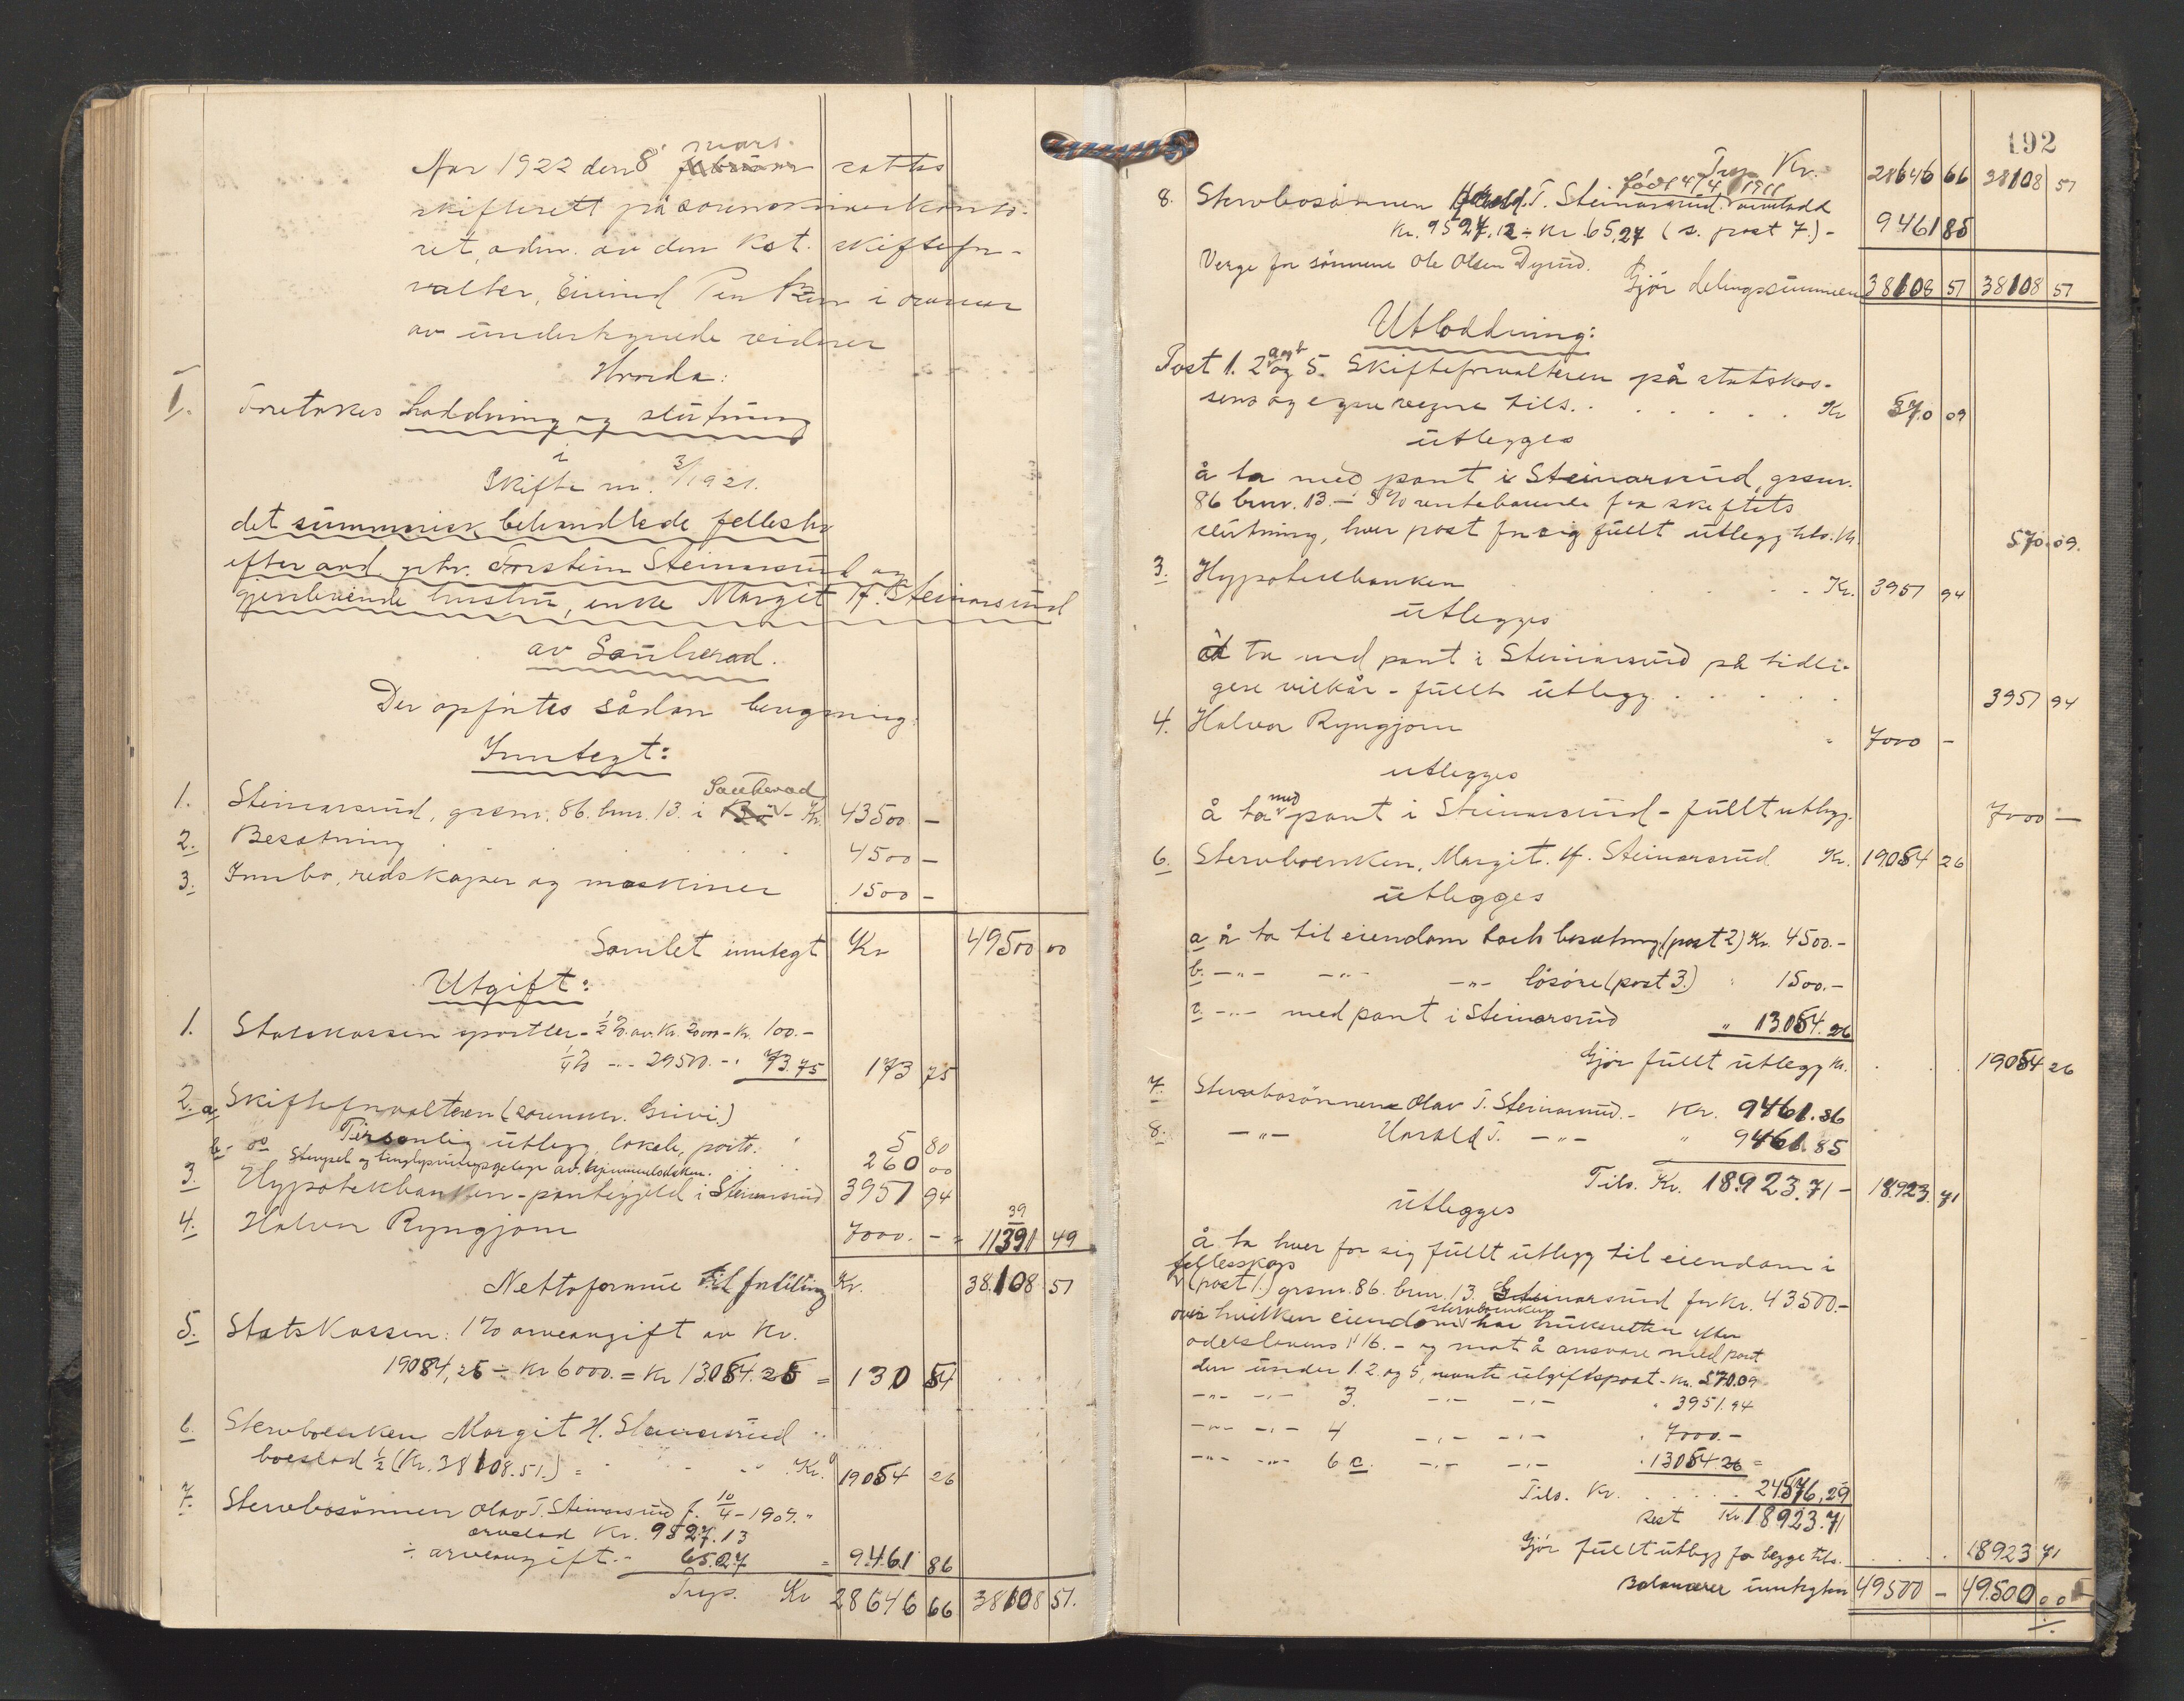 Aar 1922 den 8 mars. februar sattes
skifterett på sorenskriverkonto-
ret, adm. av den kst. skiftefor-
valter, Eivind i nærvær
av undertegnede vidner
Hvorda:
I. Foretokes loddning og slutning
i
Skifte nr. 3/1921.
det summarisk behandlede fellesbo
efter avd. gbr. Torstein Steinarsrud og
gjenlevende hustru, enke Margit H. Steinarsrud
av Sauherad.
Der opførtes sådan beregning:
Inntegt:
1. Steinarsrud, grsnr. 86. bnr. 13. i Bø Sauherad - Kr. 43500 -
2. Besetning . . . . . 4500 -
3. Innbo, redskaper og maskiner 1500 -
Samlet inntegt Kr 49500 00
Utgift:
1. Statskassen sportler - 1/2 % av Kr. 20000 - Kr. 100.-
1/4 % -"- 29500.- " 73.75 173 75
2. a Skifteforvalteren (sorenskr. Grivi)
b. do Personlig utlegg, lokale, porto. " 5 80
Stempel og tinglysningsgebyr av hjemmelsdokum. . . . 260 00
3. Hypotekbanken - pantegjeld i Steinarsrud 3951 94
4. Halvor Ryngjom 7000. - = 11391 49
39
Nettoformue til fordeling Kr. 38.108 51
5. Statskassen: 1 % arveavgift av Kr.
19084,26 ÷ Kr 6000. = Kr 13084.26 = 130 54
6. Stervboenken Margit H. Steinarsrud
boeslod 1/2 (Kr. 38108.51.) = Kr. 19054 26
7. Stervbosønnen Olav T. Steinarsrud f. 10/4 - 1907. "
arvelod Kr. 9527.13
÷ arveavgift. - 65.27 = 9461 86
Trsp. Kr 28646 66 38108 51.
192
Trsp. Kr. 28646 66 38108 51
født 4/4 1911
8. Stervbosønnen Harald T. Steinarsrud. arvelodd
Kr. 9527.12 ÷ Kr. 65,27 (s. post 7.) - 9461 85
Verge for sønnene Ole Olsen Dyrud.
Gjør delingssummen 38108 51 38108 51
Utloddning:
Post 1. 2 a og b og 5. Skifteforvalteren på statskas-
sens og egne vegne tils. . . . . . . . Kr 570 09
utlegges
å ta med pant i Steinarsrud, grsnr.
86 bnr. 13. - 5 % rentebærende fra skiftets
slutning, hver post for sig fullt utlegg tils. Kr. 570.09.
3. Hypotekbanken . . . Kr. 3951 94
utlegges
å ta med pant i Steinarsrud på tidli-
gere vilkår - fullt utlegg . . . . . 3951 94
4. Halvor Ryngjom " 7000 -
utlegges
å ta med pant i Steinarsrud - fullt utlegg. 7000 -
6. Stervboenken, Margit H. Steinarsrud Kr. 19054 26
utlegges
a å ta til eiendom boets besetning (post 2) Kr. 4500.-
b. -"- -"- -"- løsøre (post 3.) " 1500.-
c. -"- med pant i Steinarsrud " 13054.26
Gjør fullt utlegg Kr. . . 19054 26
7. Stervbosønnene Olav T. Steinarsrud. - Kr. 9461.86
8. -"- Harald T. -"- " 9461.85
Tils. Kr. 18923.71 - 18923. 71
utlegges
å ta hver for sig fullt utlegg til eiendom i
fellesskap
(post 1.) grsnr. 86. bnr. 13. Steinarsrud for Kr. 43500.-
over hvilken eiendom stervboenken har bruksretten efter
odelslovens § 16. - og mot å ansvare med pant
den under 1. 2. og 5, nevnte utgiftspost - Kr. 570.09
-"- -"- 3. -"- -"- " 3951.94
-"- -"- 4 -"- -"- " 7000.-
-"- -"- 6 c. -"- -"- " 13054 26 =
Tils. Kr. . . . . 24576,29
Rest Kr. 18923.71
Gjør fullt utlegg for begge tils. . . . . 18923 71
Balanserer inntegten 49500 - 49.500 00